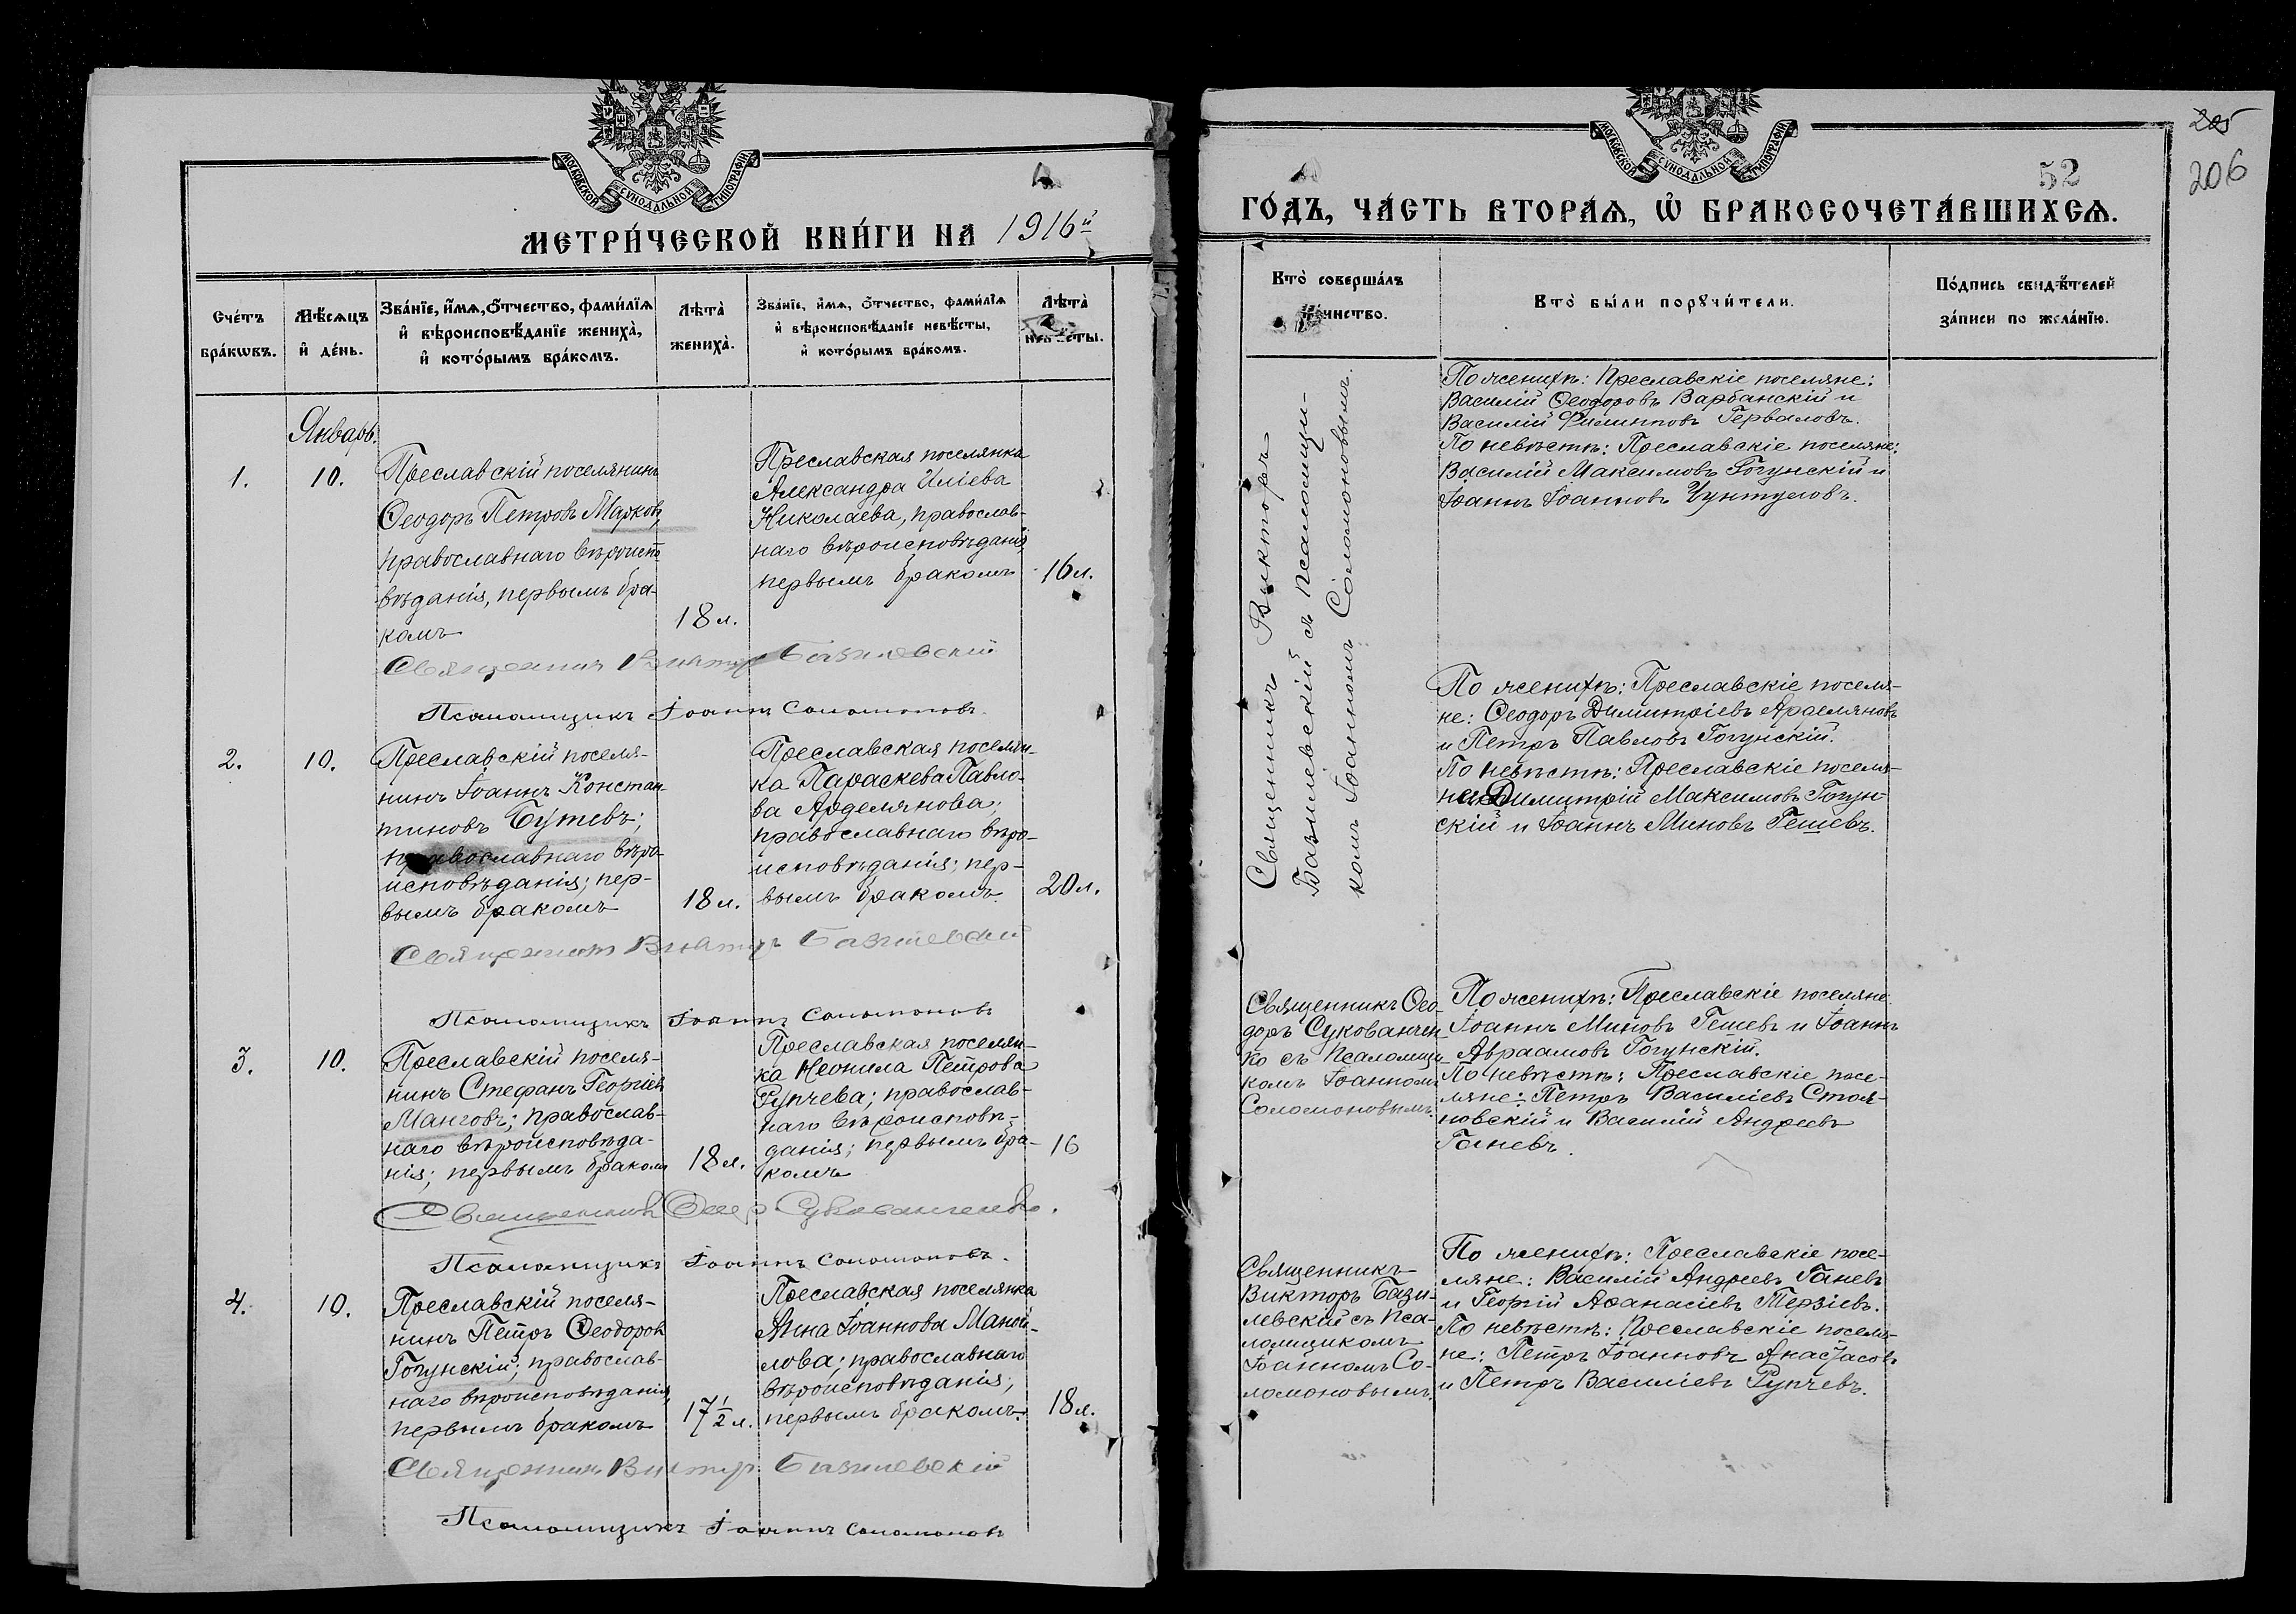 МОСКОВСКОЙ СѴНОДАЛЬНОЙ ТИПОГРАФІИ
МЕТРИ́ЧЕСКОЙ КНИ́ГИ НА 1916й
Сче́тъ бра́кѡвъ.
Мѣ́сѧцъ и҆ де́нь.
Зва́нїе, и҆́мѧ, ѻ҆́тчество, фами́лїѧ
и҆ вѣроисповѣ́данїе жениха̀,
и҆ кото́рымъ бра́комъ.
Лѣта̀
жениха̀.
Зва́нїе, и҆́мѧ, ѻ҆́тчество, фами́лїѧ
и҆ вѣроисповѣ́данїе невѣ́сты,
и҆ кото́рымъ бра́комъ.
Лѣта̀
невѣ́сты.
Январь.
1.
10.
Преславскій поселянинъ
Ѳеодоръ Петровъ Марковъ,
православнаго вѣроиспо
вѣданія, первымъ бра-
комъ
18 л.
Преславская поселянка
Александра Иліева
Николаева, православ-
наго вѣроисповѣданія
первымъ бракомъ
16 л.
Священникъ Викторъ Базилевскій
Псаломщикъ Іоаннъ Соломоновъ.
2.
10.
Преславскій поселя-
нинъ Іоаннъ Констан
тиновъ Бутевъ;
православнаго вѣро-
исповѣданія; пер-
вымъ бракомъ
18 л.
Преславская поселян-
ка Параскева Павло-
ва Арделянова;
православнаго вѣро-
исповѣданія; пер-
вымъ бракомъ.
20 л.
Священникъ Викторъ Базилевскій
Псаломщикъ Іоаннъ Соломоновъ
3.
10.
Преславскій поселя-
нинъ Стефанъ Георгіевъ
Манговъ; православ-
наго вѣроисповѣда-
нія; первымъ бракомъ
18 л.
Преславская поселян-
ка Неонила Петрова
Рупчева; православ-
наго вѣроисповѣ-
данія; первымъ бра-
комъ
16
Священникъ Ѳеодоръ Сукованченко.
Псаломщикъ Іоаннъ Соломоновъ.
4.
10.
Преславскій поселя-
нинъ Петръ Ѳеодоровъ
Гогунскій; православ-
наго вѣроисповѣданія,
первымъ бракомъ
17 1/2 л.
Преславская поселянка
Анна Іоаннова Маной-
лова; православнаго
вѣроисповѣданія;
первымъ бракомъ.
18 л.
Священникъ Викторъ Базилевскій
Псаломщикъ Іоаннъ Соломоновъ
205
206
52
МОСКОВСКОЙ СѴНОДАЛЬНОЙ ТИПОГРАФІИ
ГО́ДЪ, ЧА́СТЬ ВТОРА́Ѧ, Ѡ҆ БРАКОСОЧЕТА́ВШИХСѦ.
Кто̀ соверша́лъ
та́инство.
Кто̀ бы́ли порꙋчи́тели.
По́дпись свидѣ́телей
за́писи по жела́нїю.
Священникъ Викторъ
Базилевскій съ псаломщи-
комъ Іоанномъ Соломоновымъ.
По женихѣ: Преславскіе поселяне:
Василій Ѳеодоровъ Варбанскій и
Василій Филипповъ Герваловъ.
По невѣстѣ: Преславскіе поселяне:
Василій Максимовъ Гогунскій и
Іоаннъ Іоанновъ Чунтуловъ.
По женихѣ: Преславскіе поселя-
не: Ѳеодоръ Димитріевъ Арделяновъ
и Петръ Павловъ Гогунскій.
По невѣстѣ: Преславскіе поселя-
не: Димитрій Максимовъ Гогун-
скій и Іоаннъ Миновъ Гешевъ.
Священникъ Ѳео-
доръ Сукованчен
ко съ псаломщи
комъ Іоанномъ
Соломоновымъ.
По женихѣ: Преславскіе поселяне
Іоаннъ Миновъ Гешевъ и Іоаннъ
Авраамовъ Гогунскій.
По невѣстѣ: Преславскіе посе-
ляне: Петръ Василіевъ Стоя-
новскій и Василій Андреевъ
Ганевъ.
Священникъ
Викторъ Бази-
левскій съ пса-
ломщикомъ
Іоанномъ Со-
ломоновымъ.
По женихѣ: Преславскіе посе-
ляне: Василій Андреевъ Ганевъ
и Георгій Аѳанасіевъ Терзіевъ.
По невѣстѣ: Преславскіе поселя-
не: Петръ Іоанновъ
и Петръ Василіевъ Рупчевъ.